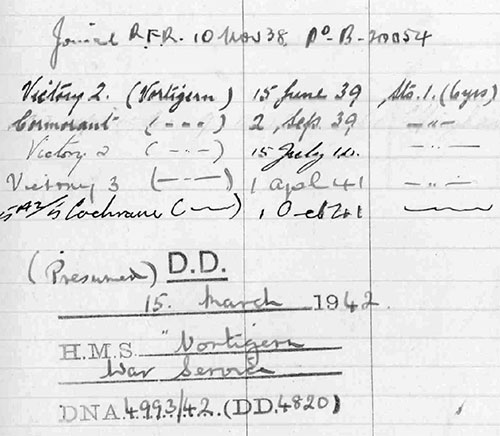 Joined R.F.R. 10 Nov 38 Po-B-20054
Victory 2. (Vortigern) 15 June 39 Sto. 1. (6yrs)
Cormorant (-"-) 2 Sep. 39 -"-
Victory 2 (-"-) 15 July -"-
Victory 3 (-"-) 1 Apl 41 -"-
Cochrane (-"-) 1 Oct 41
(Presumed) D.D.
15. March 1942.
H.M.S. "Vortigern
War Service
DNA.4993/42.(DD.4820)